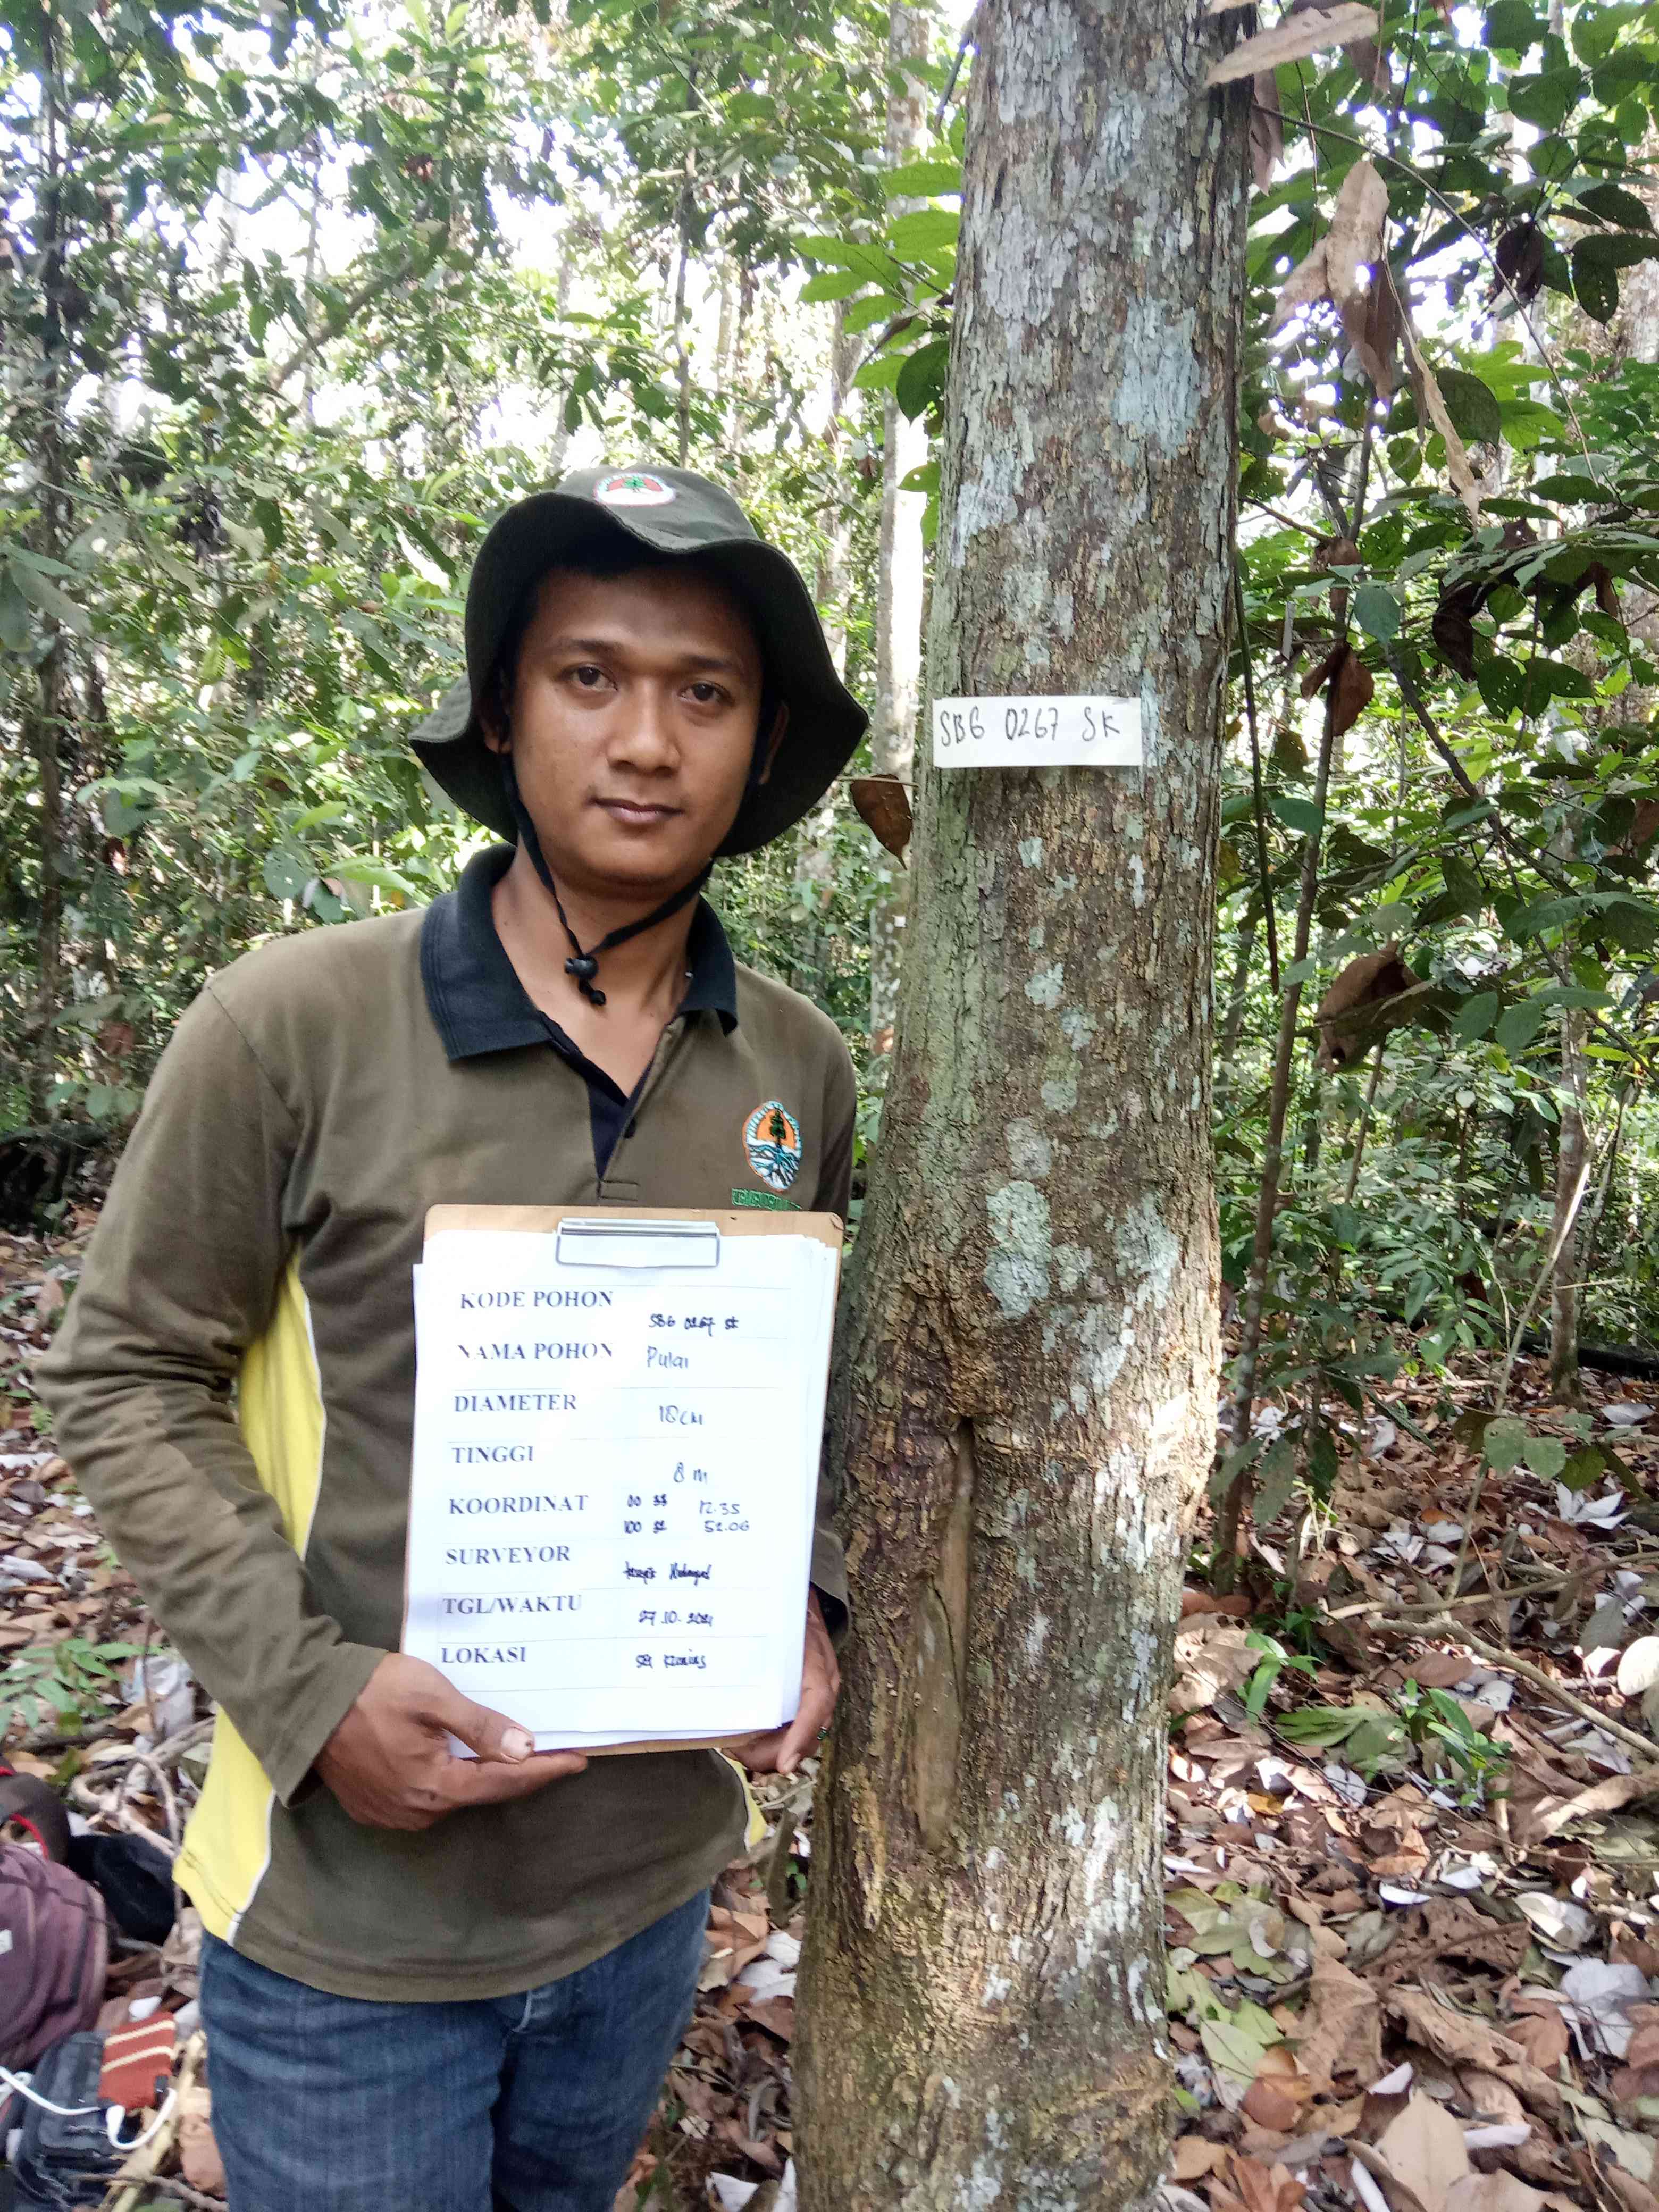 SBG 0267 SK
KODE POHON SBG 0267 SK
NAMA POHON Pulai
DIAMETER 18 CM
TINGGI 8 m
KOORDINAT 00 12.35
100 52.06
SURVEYOR
TGL/WAKTU 27.10.2021
LOKASI